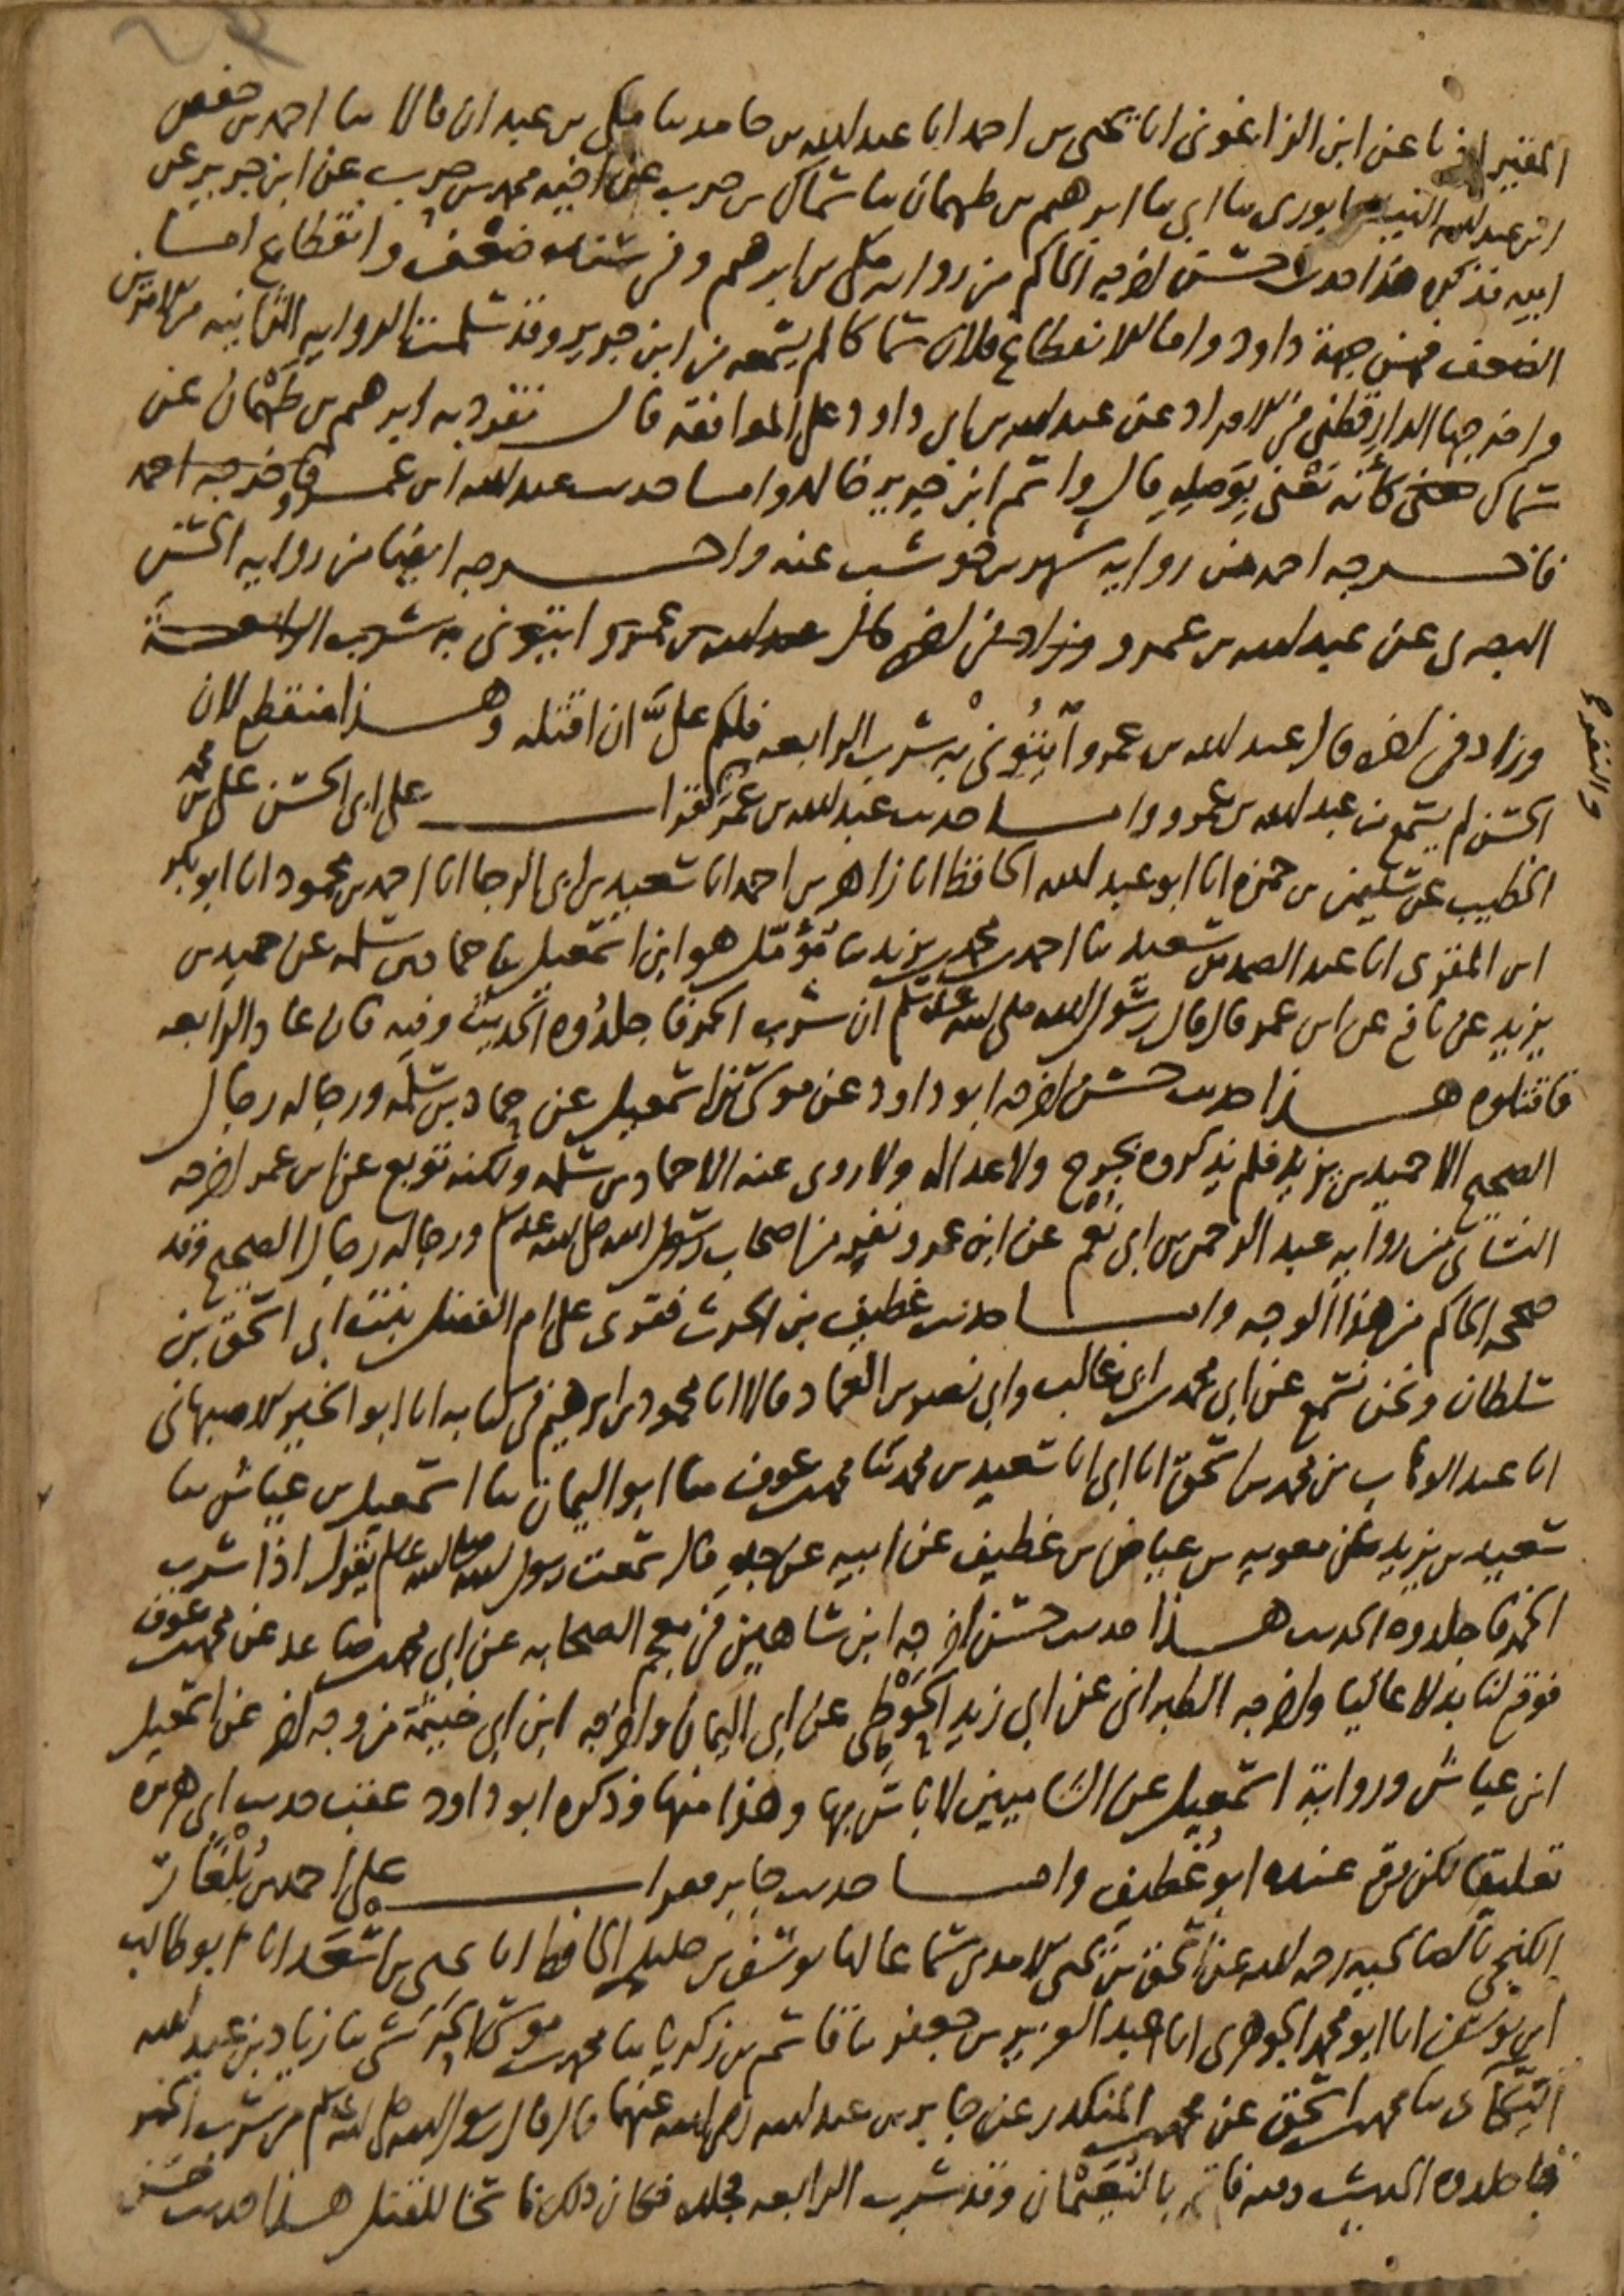 المقير اذنا عن ابن الزاغونى انا يحيى بن احمد انا عبد الله بن حامد ثنا مكى بن عبدان قالا ثنا احمد بن حفص
ابن عبد الله النيسابورى ثنا ابى ثنا ابرهيم بن طهمان ثنا سماك بن حرب عن اخيه محمد بن حرب عن ابن جرير عن
ابيه فذكره هذا حديث حسن اخرجه الحاكم من رواية مكى بن ابرهيم وفى سنده ضعف وانقطاع اما
الضعف فمن جهة داود واما الانقطاع فلان سماكا لم يسمعه من ابن جرير وقد سلمت الرواية الثانية من الامرين
واخرجها الدارقطنى فى الافراد عن عبد الله بن ابى داود على الموافقة قال تفرد به ابرهيم بن طهمان عن
سماك كأنه يعنى بوصله قال واسم ابن جرير خالد واما حديث عبد الله ابن عمرو فاخرجه احمد
فاخرجه احمد من رواية شهر بن حوشب عنه واخرجه ايضا من رواية الحسن
البصرى عن عبد الله بن عمرو وزاد فى اخره قال عبد الله بن عمرو ايتونى به شرب الرابعة
وزاد فى اخره قال عبد الله بن عمرو ائتونى به شرب الرابعة فلكم علىّ ان اقتله وهذا منقطع لان
الحسن لم يسمع من عبد الله بن عمرو واما حديث عبد الله بن عمر فقرات على ابى الحسن على بن محمد
الخطيب عن سليمن بن حمزة انا ابو عبد الله الحافظ انا زاهر بن احمد انا سعيد بن ابى الرجا انا احمد بن محمود انا ابو بكر
ابن المقرى انا عبد الصمد بن سعيد ثنا احمد بن محمد بن يزيد ثنا مؤمل هو ابن اسمعيل ثنا حماد بن سلمه عن حميد بن
يزيد عن نافع عن ابن عمر قال قال رسول الله صلى الله عليه وسلم ان شرب الخمر فاجلدوه الحديث وفيه فان عاد الرابعه
فاقتلوه هذا حديث حسن اخرجه ابو داود عن موسى بن اسمعيل عن حماد بن سلمه ورجاله رجال
الصحيح الا حميد بن يزيد فلم يذكروه بجرح ولا عداله ولا روى عنه الا حماد بن سلمه ولكنه توبع عن ابن عمر اخرجه
النسائى من رواية عبد الرحمن بن ابى نعم عن ابن عمر ونفر من اصحاب رسول الله صلى الله عليه وسلم ورجاله رجال الصحيح وقد
صححه الحاكم من هذا الوجه واما حديث غطيف بن الحرث فقرى على ام الفضل بنت ابى اسحق بن
سلطان ونحن نسمع عن ابى محمد بن ابى غالب وابى نصر بن العماد قالا انا محمود بن ابرهيم فى كتابه انا ابو الخير الاصبهانى
انا عبد الوهاب بن محمد بن اسحق انا ابى انا سعيد بن محمد ثنا محمد بن عوف ثنا ابو اليمان ثنا اسمعيل بن عياش ثنا
سعيد بن يزيد عن معويه بن عياض بن غطيف عن ابيه عن جده قال سمعت رسول الله صلى الله عليه وسلم يقول اذا شرب
الخمر فاجلدوه الحديث هذا حديث حسن اخرجه ابن شاهين فى معجم الصحابه عن ابى محمد بن صاعد عن محمد بن عوف
فوقع لنا بدلا عاليا واخرجه الطبرانى عن ابى زيد الحوطى عن ابى اليمان واخرجه ابن ابى خيثمة من وجه اخر عن اسمعيل
ابن عياش ورواية اسمعيل عن الشاميين لا باس بها وهذا منها وذكره ابو داود عقب حديث ابى هريرة
تعليقا لكن وقع عنده ابو غطيف واما حديث جابر فقرات على احمد بن بلغاق
الكنجى بالصالحيه رحمه الله عن اسحق بن يحيى الامدى سماعا انا يوسف بن خليل الحافظ انا يحيى بن اسعد انا ابو طالب
ابن يوسف انا ابو محمد الجوهرى انا عبد العزيز بن جعفر ثنا قاسم بن زكريا ثنا محمد بن موسى الحرشى ثنا زياد بن عبد الله
البكائى ثنا محمد بن اسحق عن محمد بن المنكدر عن جابر بن عبد الله رضى الله عنهما قال قال رسول الله صلى الله عليه وسلم من شرب الخمر
فاجلدوه الحديث وفيه فاتى بالنعيمان وقد شرب الرابعه فجلده فكان ذلك ناسخا للقتل هذا حديث حسن